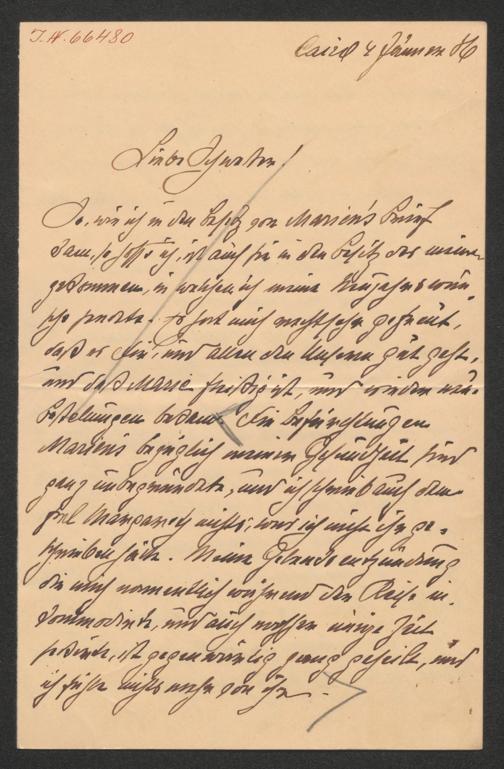 I.N. 66480
Cairo 4 Jänner 86
Liebe Schwester!
So, wie ich in den Besitz von Marien's Brief
kam, so hoffe ich, ist auch sie in den Besitz des meinen
gekommen, in welchen ich meine Neujahrswün-
sche sandte. Es hat mich recht sehr gefreut,
daß es Dir, und allen den Unseren gut geht,
und daß Marie fleißig ist, und wieder neue
Bestellungen bekam. Die Befürchtungen
Marien's bezüglich meiner Gesundheit sind
ganz unbegründete, und ich schrieb auch dem
Frl nichts, was ich nicht ihr ge-
schrieben hätte. Meine Gelenksentzündung
die mich namentlich während der Reise in-
kommodirte, und auch nachher einige Zeit
, ist gegenwärtig ganz geheilt, und
ich fühle nichts mehr von ihr.